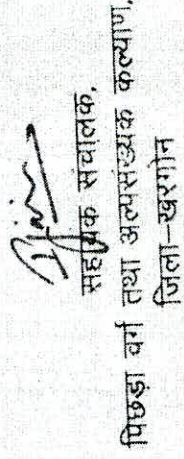 सहायक संचालक,
पिछड़ा वर्ग तथा अल्पसंख्यक कल्याण,
जिला-खरगोन